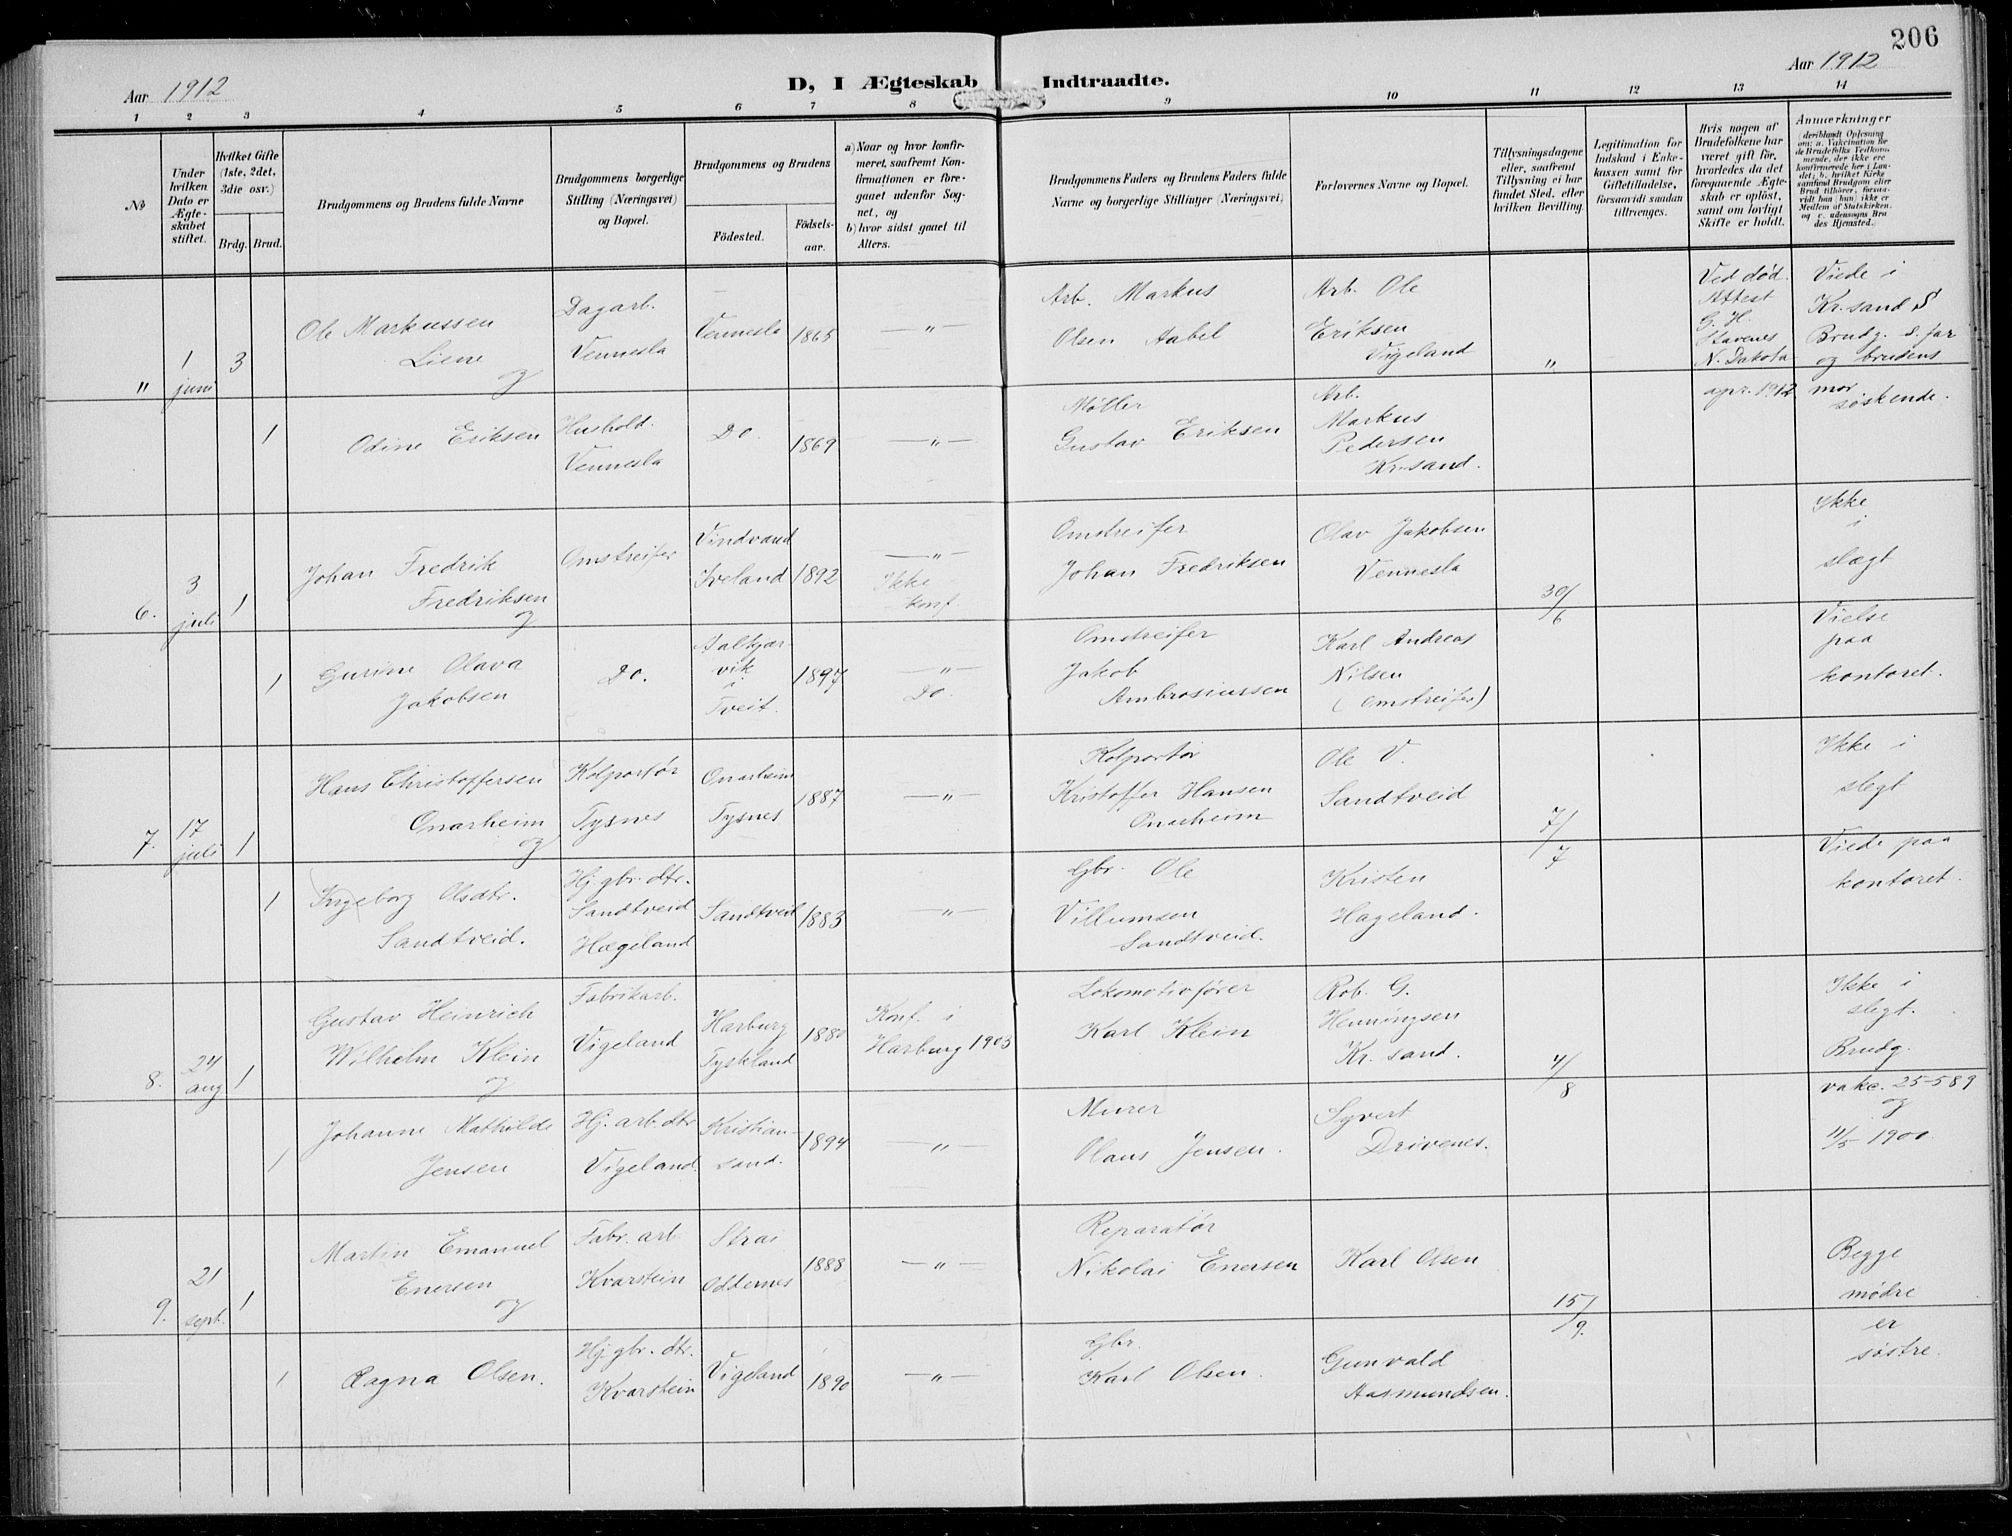 206
Aar 1912
D, I Ægteskab Indtraadte.
Aar 1912
1 2 3 4 5 6 7 8 9 10 11 12 13 14
No
Under
hvilken
Dato er
Ægte-
skabet
stiftet.
Hvilket Gifte
(1ste, 2det,
3die osv.)
Brdg. Brud.
Brudgommens og Brudens fulde Navne
Brudgommens borgerlige
Stilling (Næringsvei)
og Bopæl.
Brudgommens og Brudens
Fødested.
Fødsels-
aar.
a) Naar og hvor konfir-
meret, saafremt Kon-
firmationen er fore-
gaaet udenfor Sog-
net, og
b) hvor sidst gaaet til
Alters.
Brudgommens Faders og Brudens Faders fulde
Navne og borgerlige Stillinger (Næringsvei)
Forlovernes Navne og Bopæl.
Tillysningsdagene
eller, saafremt
Tillysning ei har
fundet Sted, efter
hvilken Bevilling.
Legitimation for
Indskud i Enke-
kassen samt for
Giftetilladelse,
forsaavidt saadan
tiltrænges.
Hvis nogen af
Brudefolkene har
været gift før,
hvorledes da det
foregaaende Ægte-
skab er opløst,
samt om lovligt
Skifte er holdt.
Anmærkninger
(deriblandt Oplysning
om: a. Vakcination for
de Brudefolks Vedkom-
mende, der ikke ere
konfirmerede her i Lan-
det; b. hvilket Kirke
samfund Brudgom eller
Brud tilhører, forsaa-
vidt han (hun) ikke er
Medlem af Statskirken.
og c. udensogns Bru
des Hjemsted.
" 1 juni 3
Ole Markussen
Liene
og
Dagarb.
Vennesla
Vennesla 1865 — " —
Arb. Markus
Olsen Aabel
Arb. Ole
Eriksen
Vigeland
"
Ved død.
Attest
G. H.
Stavenes
N. Dakota
apr. 1912
Viede i
Kr.sand S
Brudg. s. far
og brudens
mor
søskende.
1
Odine Eriksen
Hushold.
Vennesla
Do. 1869 — " —
Møller
Gustav Eriksen
Arb.
Markus
Pedersen
Kr.sand.
6. 3 juli 1
Johan Fredrik
Fredriksen
og
Omstreifer
Vindvand
Iveland 1892
— " —
Ikke
konf.
Omstreifer
Johan Fredriksen
Olav Jakobsen
Vennesla
30/6
Ikke
i
slægt
Vielse
paa
kontoret.
1
Gurine Olava
Jakobsen
Do.
Aalkjær-
vik
i
Tveit. 1897
— " —
Do.
Omstreifer
Jakob
Ambrosiussen
Karl Andreas
Nilsen
(Omstreifer)
7. 17 juli 1
Hans Christoffersen
Onarheim
og
Kolportør
Tysnes
Onarheim
Tysnes 1887 — " —
Kolportør
Kristoffer Hansen
Onarheim
Ole V.
Sandtveid
7/7
Ikke i
slegt
Viede paa
kontoret.
1
Ingeborg Olsdtr.
Sandtveid.
Hj. gbr. dtr.
Sandtveid
Hægeland
Sandtveid 1883 — " —
Gbr. Ole
Villumsen
Sandtveid.
Kristen
Hageland.
8. 24 aug. 1
Gustav Heinrich
Wilhelm Klein
og
Fabrikarb.
Vigeland
Harburg
Tyskland 1880
Konf. i
Harburg 1903
Lokomotivfører
Karl Klein
Rob. G.
Henningsen
Kr. sand.
4/8
Ikke i
slegt.
Brudg.
vakc. 25-5 89
og
4/5 1900.
1
Johanne Mathilde
Jensen
Hj. arb. dtr
Vigeland.
Kristian-
sand. 1894 — " —
Murer
Olaus Jensen.
Syvert
Drivenes.
9. 21 sept. 1
Martin Emanuel
Enersen
og
Fabr. arb
Kvarstein
Strai
Oddernes 1888 — " —
Reparatør
Nikolai Enersen
Karl Olsen
15/9.
Begge
mødre
er
søstre.
1
Ragna Olsen.
Hj. gbr. dtr.
Kvarstein
Vigeland 1890 — " —
Gbr.
Karl Olsen.
Gunvald
Aasmundsen.